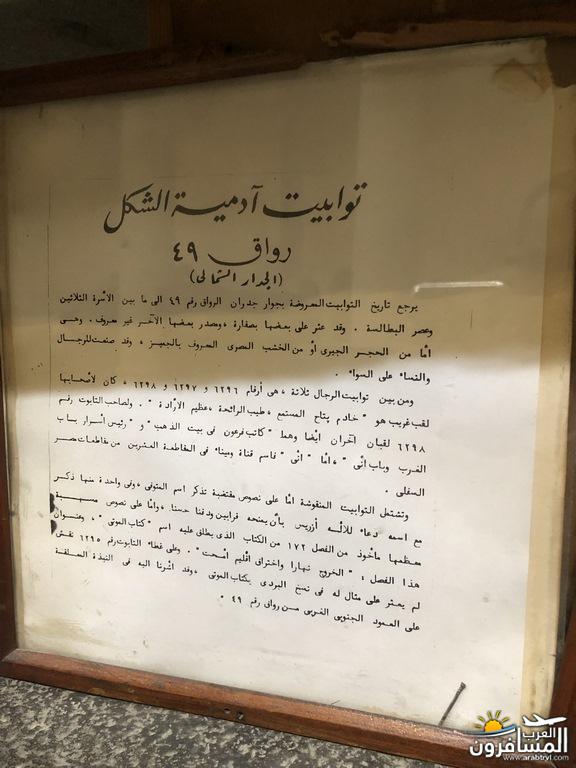 توابيت آدمية الشكل
رواق ٤٩
(الجدار الشمالى)
يرجع تاريخ التوابيت المعروضة بجوار جدران الرواق رقم ٤٩ الى ما بين الأسرة الثلاثين
وعصر البطالسة . وقد عثر على بعضها بصقارة ، ومصدر بعضها الآخر غير معروف . وهى
اما من الحجر الجيرى أو من الخشب المصرى المعروف بالجميز ، وقد صنعت للرجال
والنساء على السواء .
ومن بين توابيت الرجال ثلاثة ، هى أرقام ٦٢٩٦ و ٦٢٩٧ و ٦٢٩٨ ، كان لأصحابها
لقب غريب هو " خادم بتاح المستمع ، طيب الرائحة ، عظيم الأرادة " . ولصاحب التابوت رقم
٦٢٩٨ لقبان آخران ايضا وهما " كاتب فرعون فى بيت الذهب " و " رئيس أسرار باب
الغرب وباب انى " ، أما " انى " فاسم قناة وميناء فى المقاطعة العشرين من مقاطعات مصر
السفلى .
وتشتمل التوابيت المنقوشة اما على نصوص مقتضبة تذكر اسم المتوفى ، وفى واحدة منها ذكر
مع اسمه دعاء للاله أزريس بأن يمنحه قرابين ودفنا حسنا . واما على نصوص مسهبة
معظمها مأخوذ من الفصل ١٧٢ من الكتاب الذى يطلق عليه اسم " كتاب الموتى " ، وعنوان
هذا الفصل : " الخروج نهارا واختراق اقليم أمحت " . وعلى غطاء التابوت رقم ٦٢٩٥ نقش
لم يعثر على مثال له فى نسخ البردى بكتاب الموتى ، وقد أشرنا اليه فى النبذة المعلقة
على العمود الجنوبى الغربى من رواق رقم ٤٩ .
العرب
المسافرون
www.arabtrvl.com